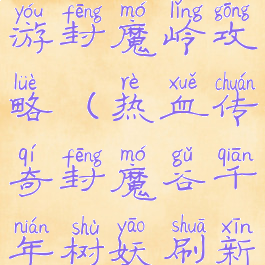 yóu fēng mó lǐng gōng
游封魔岭攻
lüè rè xuě chuán
略（热血传
qí fēng mó gǔ qiān
奇封魔谷千
nián shù yāo shuā xīn
年树妖刷新